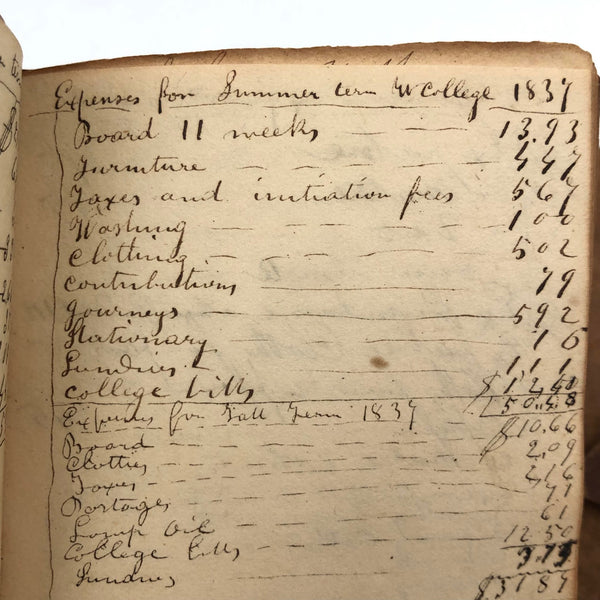 Expenses for Summer term W College 1837
Board 11 weeks 13.93
Furniture 4 47
Taxes and initiation fees 5 67
Washing 1 00
Clothing 5 02
Contributions 79
Journeys 5 92
Stationary 16
Sundries 1 11
College bills $12.40
$50.48
Expenses for Fall Term 1837
Board $10.66
Clothes 2.09
Taxes 2,16
Portages 71
Lamp Oil 61
College bills 12.50
Sundries
$37 87